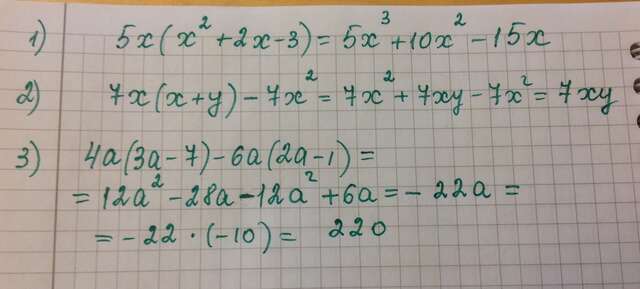 1) 5x(x²+2x-3)=5x³+10x²-15x
2) 7x(x+y)-7x²=7x²+7xy-7x²=7xy
3) 4a(3a-7)-6a(2a-1)=
=12a²-28a-12a²+6a=-22a=
=-22·(-10)= 220